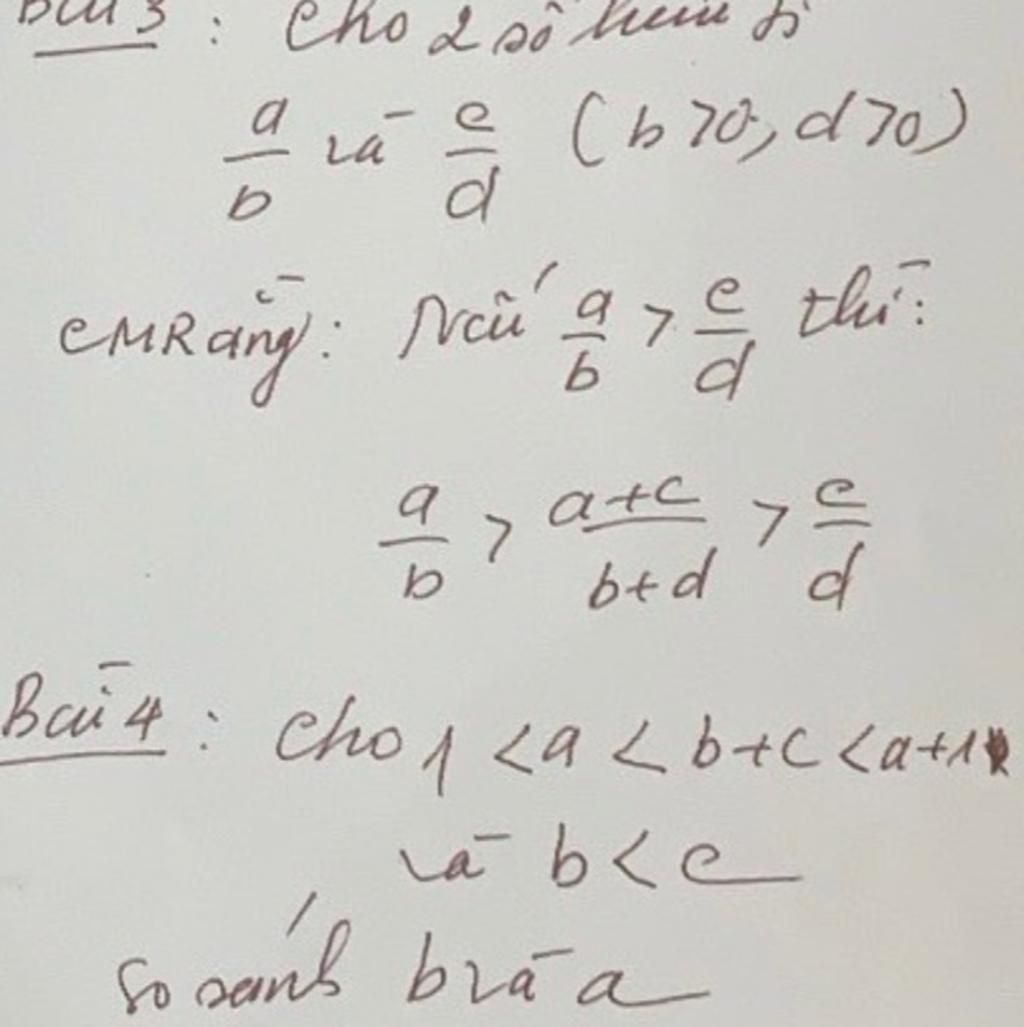 Bài 3 : Cho 2 số hữu tỉ
a/b và c/d (b>0, d>0)
CMRằng: Nếu a/b > c/d thì:
a/b > a+c/b+d > c/d
Bài 4 : Cho 1 < a < b+c < a+1
và b < c
So sánh b và a